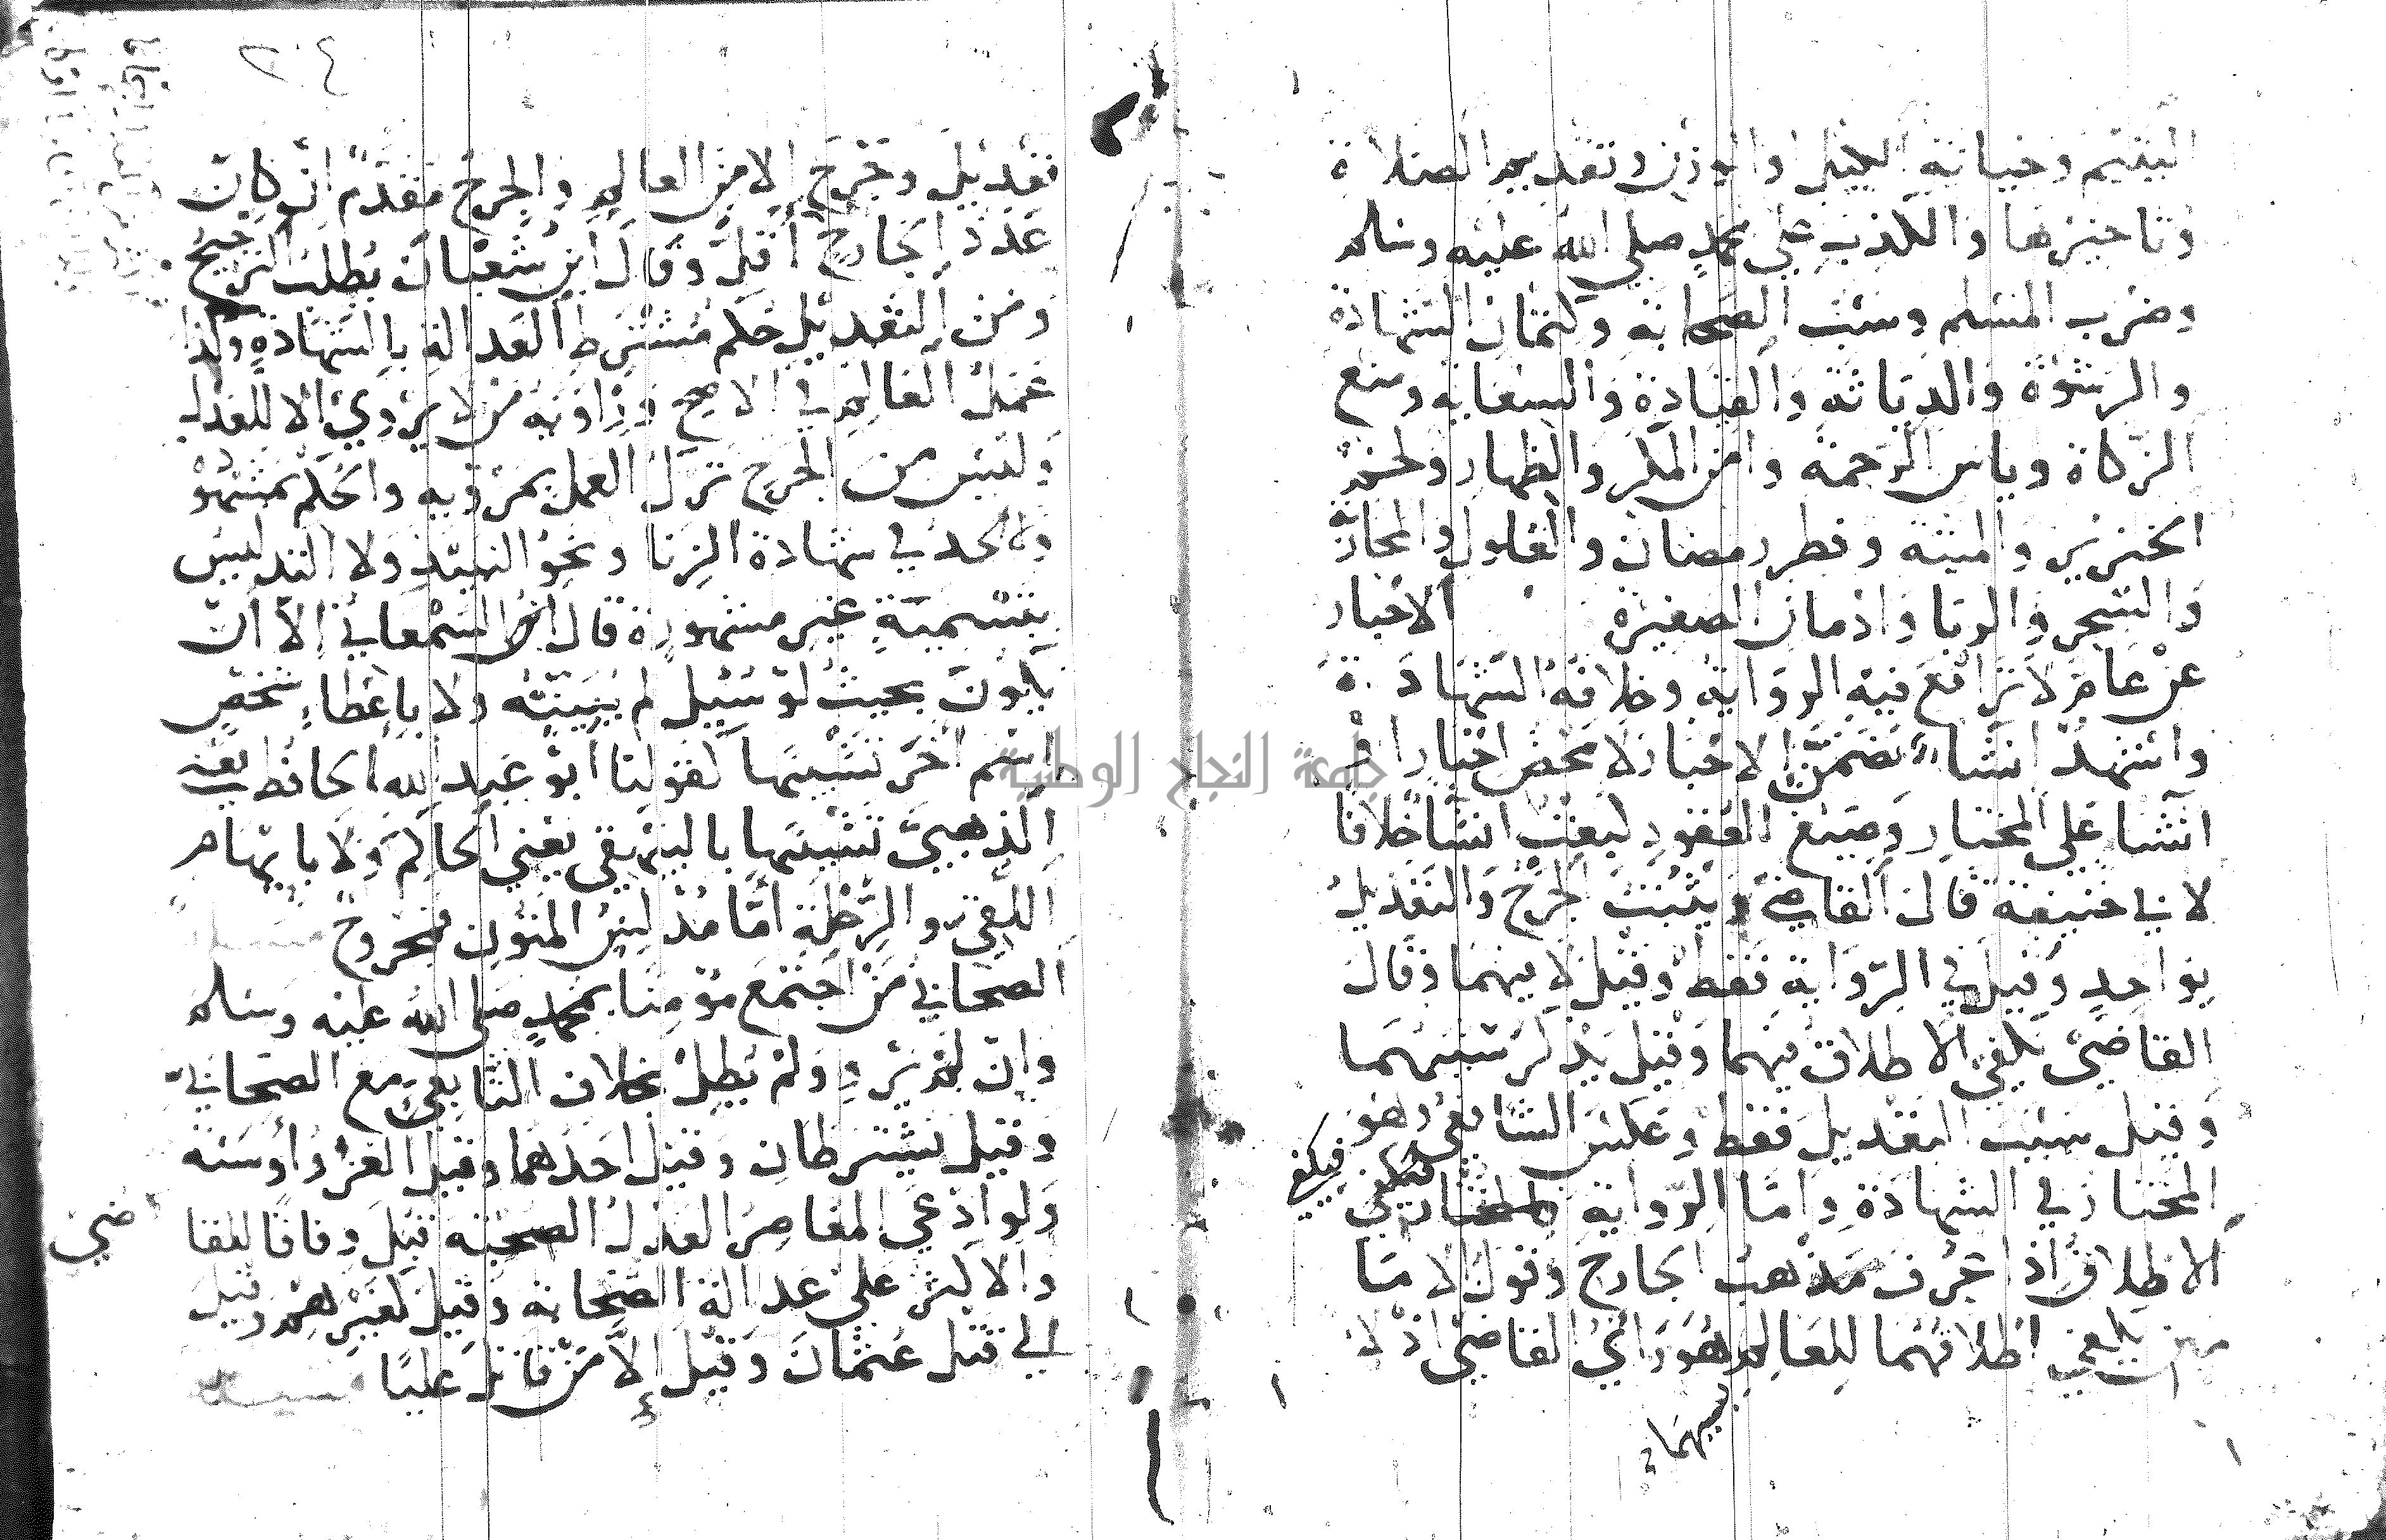 اليتيم وخيانة الكيل والوزن وتقديم الصلاة
وتاخيرها والكذب على محمد صلى الله عليه وسلم
وضرب المسلم وسب الصحابة وكتمان الشهادة
والرشوة والدياثة والقيادة والسعاية ومنع
الزكاة وياس الرحمة وامن المكر والظهار ولحم
الخنزير والميتة وفطر رمضان والغلول والمحاربة
والسحر والربا وادمان الصغيرة الاخبار
عن عام لا ترافع فيه الرواية وخلافه الشهادة
واشهد انشا تضمن الاخبار لا محض اخبار او
انشا على المختار وصيغ العقود كبعت انشا خلافا
لابي حنيفة قال القاضي ويثبت الجرح والتعديل
بواحد وقيل في الرواية فقط وقيل لا فيهما وقال
القاضي يكفي الاطلاق فيهما وقيل يذكر سببهما
وقيل سبب التعديل فقط وعكس الشافعي وهو
المختار في الشهادة واما الرواية فالمختار يكفي
فيكفي
الاطلاق اذا عرف مذهب الجارح وقول الامامين
يكفي اطلاقهما للعالم بسببهما هو راي القاضي اذ لا
٢٠٤
تعديل وجرح الا من العالم والجرح مقدم ان كان
عدد الجارح أقل وقال ابن شعبان يطلب الترجيح
ومن التعديل حكم مشترط العدالة بالشهادة وكذا
عمل العالم في الاصح ورواية من لا يروي الا للعدل
وليس من الجرح ترك العمل بمرويه والحكم بمشهوده
ولا الحد في شهادة الزنا ونحو النبيذ ولا التدليس
بتسمية غير مشهورة قال ابن السمعاني الا أن
يكون بحيث لو سئيل لم يبينه ولا باعطاء شخص
اسم اخر تشبيها كقولنا ابو عبد الله الحافظ يعني
الذهبي تشبيها بالبيهقي يعني الحاكم ولا بايهام
اللقي والرحلة أما مدليس المتون فمجروح مسئلة
الصحابي من اجتمع مؤمنا بمحمد صلى الله عليه وسلم
وان لم يرو ولم يطل بخلاف التابعي مع الصحابي
وقيل يشترطان وقيل احدهما وقيل الغزو أو سنة
ولو ادعى المعاصر العدل الصحبة قبل وفاقا للقاضي
والاكثر على عدالة الصحابة وقيل كغيرهم وقيل
الى قتل عثمان وقيل إلا من قاتل عليا مسئلة
جامعة النجاح الوطنية